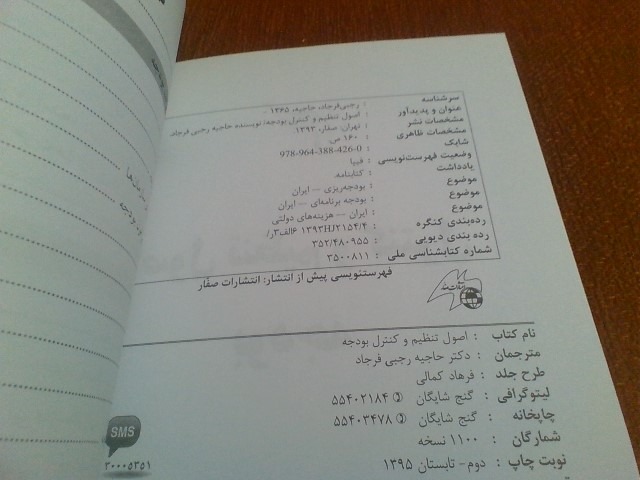 سرشناسه : رجبی‌فرجاد، حاجیه، ۱۳۴۵ -
عنوان و پدیدآور : اصول تنظیم و کنترل بودجه/ نویسنده حاجیه رجبی فرجاد
مشخصات نشر : تهران: صفار، ۱۳۹۳
مشخصات ظاهری : ۱۶۰ ص.
شابک : 978-964-388-426-0
وضعیت فهرست‌نویسی : فیپا
یادداشت : کتابنامه.
موضوع : بودجه‌ریزی -- ایران
موضوع : بودجه برنامه‌ای -- ایران
موضوع : ایران -- هزینه‌های دولتی
رده‌بندی کنگره : ۱۳۹۳HJ۲۱۵۴/۴ ۶الف۳ر/
رده بندی دیویی : ۳۵۲/۴۸۰۹۵۵
شماره کتابشناسی ملی : ۳۵۰۰۸۱۱
فهرستنویسی پیش از انتشار: انتشارات صفّار
نام کتاب : اصول تنظیم و کنترل بودجه
مترجمان : دکتر حاجیه رجبی فرجاد
طرح جلد : فرهاد کمالی
لیتوگرافی : گنج شایگان ۵۵۴۰۲۱۸۴
چاپخانه : گنج شایگان ۵۵۴۰۳۴۷۸
شمارگان : ۱۱۰۰ نسخه
نوبت چاپ : دوم - تابستان ۱۳۹۵
SMS
۳۰۰۰۵۳۵۱